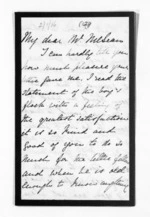 My dear Mr McLean
I can hardly tell you
how much pleasure your
gave me. I read the
statement of the boy's
with a feeling of
the greatest satisfaction
it is so kind and
good of you to do so
much for the little fellow
and when he is old
enough to know anything